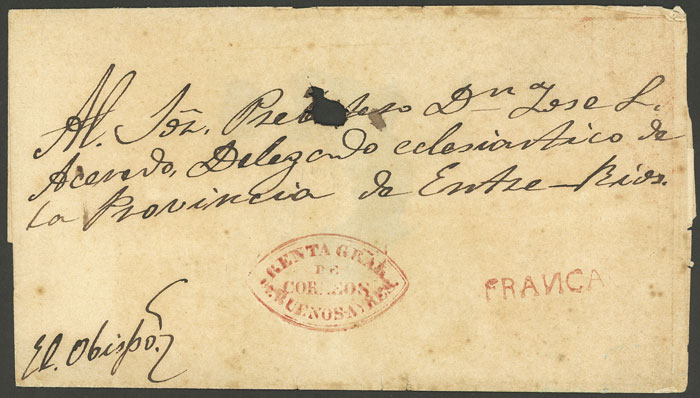 Al. Sör. Dn Jose L.
Acevedo, Delegado eclesiastico de
la Provincia de Entre-Rios.
RENTA GRAL.
DE
CORREOS
DE BUENOS-AYRES.
FRANCA
El. Obispo.